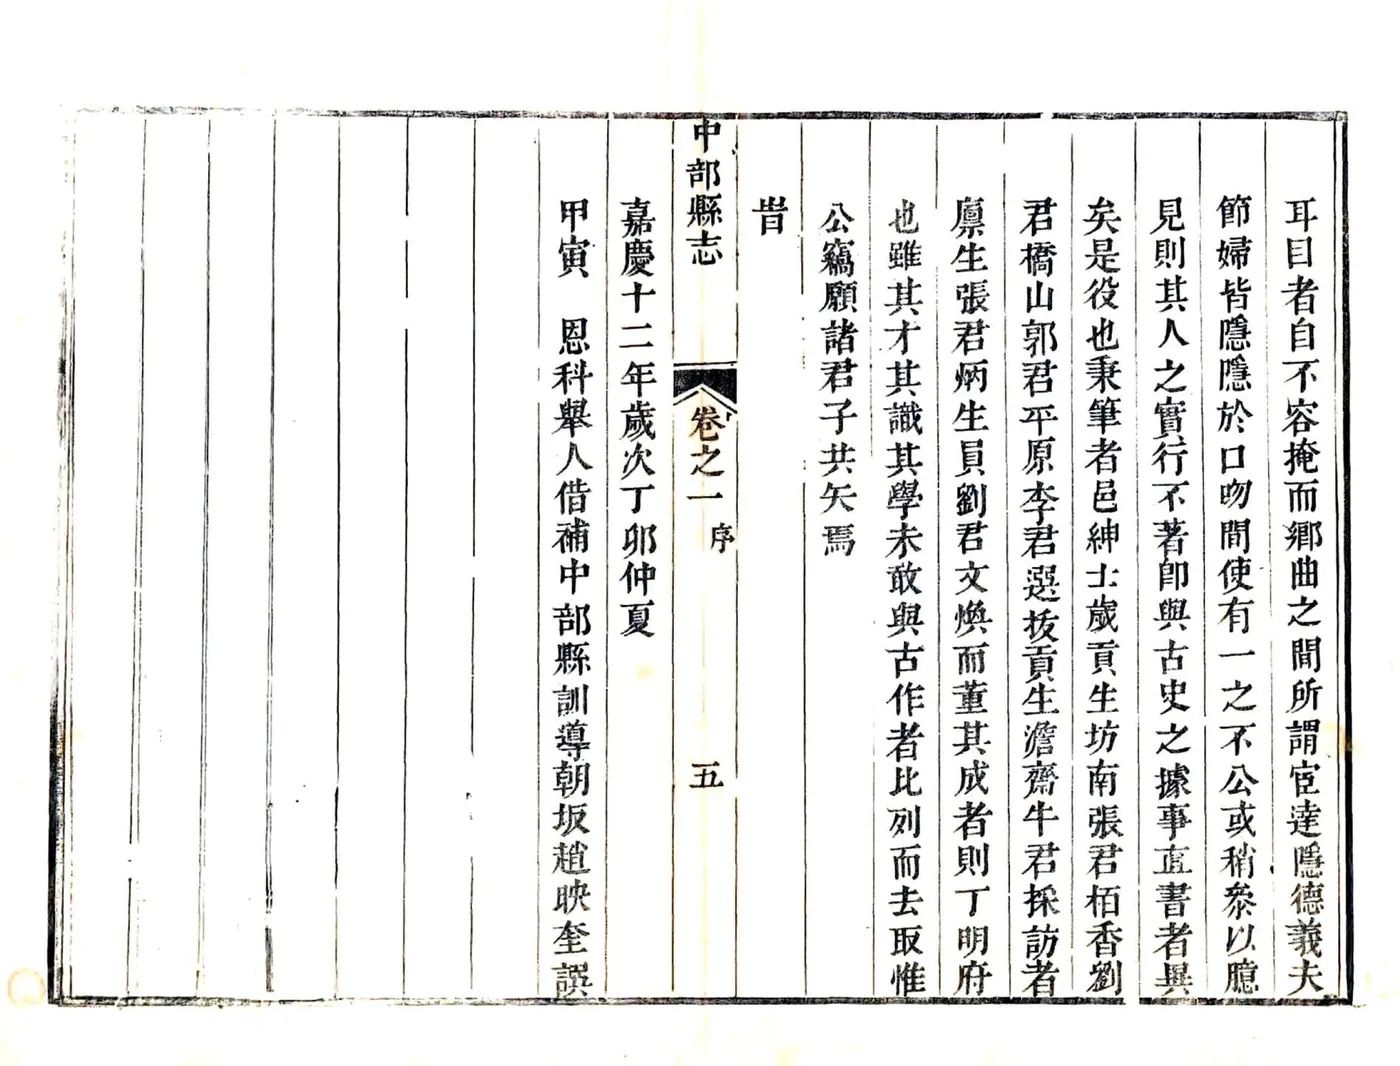 耳目者自不容掩而鄉曲之間所謂宦達隱德義夫
節婦皆隱隱於口吻間使有一之不公或稍叅以臆
見則其人之實行不著卽與古史之據事直書者異
矣是役也秉筆者邑紳士歲貢生坊南張君栢香劉
君橋山郭君平原李君選拔貢生澹齋牛君採訪者
廪生張君炳生員劉君文煥而董其成者則丁明府
也雖其才其識其學未敢與古作者比列而去取惟
公竊願諸君子共矢焉
旹
中部縣志
卷之一
序
五
嘉慶十二年歲次丁卯仲夏
甲寅 恩科舉人借補中部縣訓導朝坂趙映奎譔